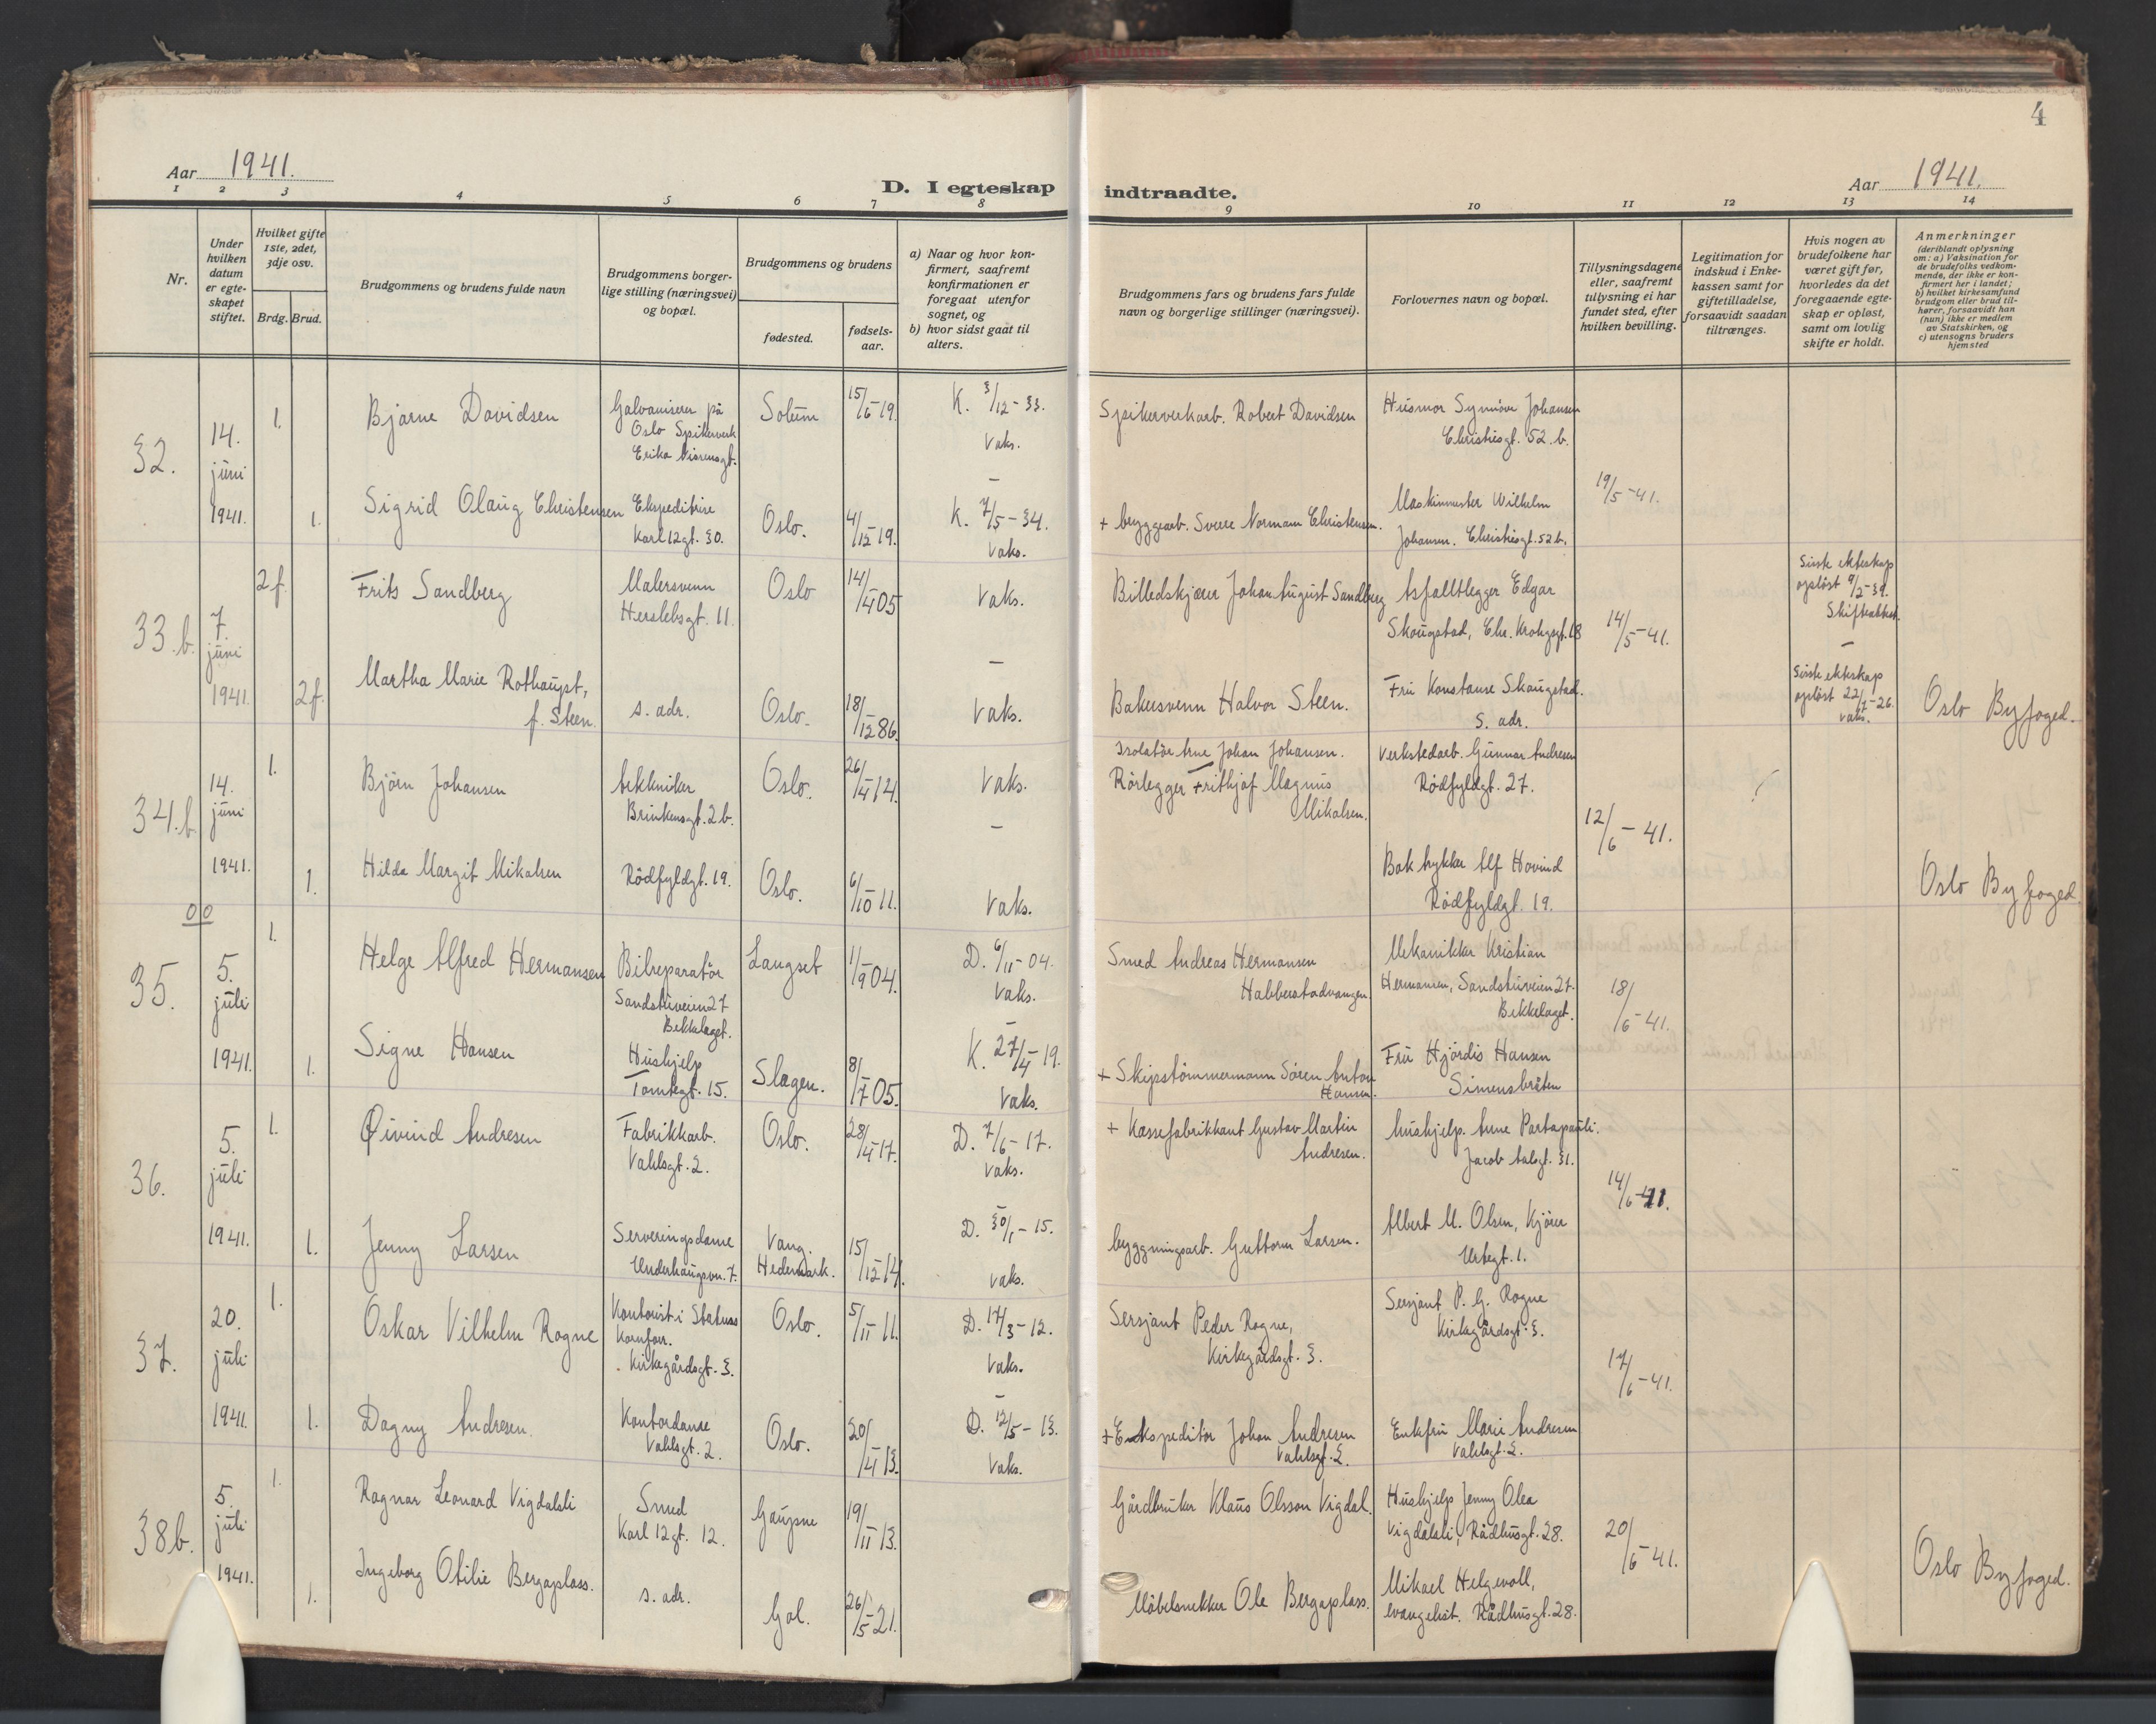 4
Aar 1941.
D. I egteskap indtraadte.
Aar 1941.
1 2 3 4 5 6 7 8 9 10 11 12 13 14
Nr.
Under hvilken datum er egteskapet stiftet.
Hvilket gifte 1ste, 2det, 3dje osv.
Brdg. Brud.
Brudgommens og brudens fulde navn
Brudgommens borgerlige stilling (næringsvei) og bopæl.
Brudgommens og brudens
fødested.
fødselsaar.
a) Naar og hvor konfirmert, saafremt konfirmationen er foregaat utenfor sognet, og
b) hvor sidst gaat til alters.
Brudgommens fars og brudens fars fulde navn og borgerlige stillinger (næringsvei).
Forlovernes navn og bopæl.
Tillysningsdagene eller, saafremt tillysning ei har fundet sted, efter hvilken bevilling.
Legitimation for indskud i Enkekassen samt for giftetilladelse, forsaavidt saadan tiltrænges.
Hvis nogen av brudefolkene har været gift før, hvorledes da det foregaaende egteskap er opløst, samt om lovlig skifte er holdt.
Anmerkninger
(deriblandt oplysning om: a) Vaksination for de brudefolks vedkommende, der ikke er konfirmert her i landet; b) hvilket kirkesamfund brudgom eller brud tilhører, forsaavidt han (hun) ikke er medlem av Statskirken, og c) utensogns bruders hjemsted
32.
14. juni 1941.
1.
Bjarne Davidsen
Galvaniserer på
Oslo Spikerverk
Solum
15/6-19.
K. 3/12-33.
Vaks.
Spikerverkarb. Robert Davidsen
Husmor Synnöve Johansen
Christiesgt. 52.b.
19/5-41.
1.
Sigrid Olaug Christensen
Ekspeditrise
Karl 12gt. 30.
Oslo.
4/12 19.
K. 7/5-34.
Vaks.
+ bryggearb. Sverre Normann Christensen.
Maskinmester Wilhelm
Johansen. Christiesgt. 52b.
33.b.
7. juni 1941
2f.
Frits Sandberg
Malersvenn
Herslebsgt. 11.
Oslo
14/4 05
Vaks.
Billedskjærer Johan August Sandberg
Asfaltlegger Edgar
Skaugstad, Chr. Krohgsgt. 18
14/5-41.
Siste ekteskap
opløst 9/2-39.
2f.
Martha Marie Rothaupt,
f. Steen.
s. adr.
Oslo.
18/12 86.
Vaks.
Bakersvenn Halvor Steen.
Fru Konstanse Skaugstad.
s. adr.
Siste ekteskap
opløst 22/7-26.
vaks.
Oslo Byfoged.
34.b.
14. juni 1941.
1.
Björn Johansen
tekkniker
Brinkensgt. 2b.
Oslo.
26/4 14.
Vaks.
Isolatör Arne Johan Johansen.
Rörlegger Frithjof Magnus
Mikalsen.
Verkstedarb. Gunnar Andresen
Rödfyldgt. 27.
12/6-41.
1.
Hilda Margit Mikalsen
Rödfyldgt. 19.
Oslo.
6/10 11.
Vaks.
Alf Hovind
Rödfyldgt. 19.
Oslo Byfoged
00
35.
5. juli 1941.
1.
Helge Alfred Hermansen
Bilreparatör
Sandstuveien 27
Bekkelaget.
Langset
1/9 04.
D. 6/11-04.
Vaks.
Smed Andreas Hermansen
Mekanikker Kristian
Hermansen, Sandstuveien 27.
Bekkelaget.
18/6-41.
1.
Signe Hansen
Hushjelp
Tomtegt. 15.
Slagen.
8/7 05.
K. 27/4-19.
Vaks.
+ Skipstömmermann Sören Anton
Hansen.
Fru Hjördis Hansen
Simensbråten
36.
5. juli 1941.
1.
Øivind Andresen
Fabrikkarb.
Vahlsgt. 2.
Oslo.
28/4 17.
D. 7/6-17.
Vaks.
+ Kassefabrikkant Gustav Martin
Andresen.
Hushjelp. Anne Partapuoli.
Jacob Aalsgt. 31.
14/6-41.
1.
Jenny Larsen
Serveringsdame
Underhaugsvn. 7.
Vang.
Hedemark.
15/12 14.
D. 30/1-15.
Vaks.
bygningsarb. Guttorm Larsen.
Albert M. Olsen, Kjörer
Urtegt. 1.
37.
20. juli 1941.
1.
Oskar Vilhelm Rogne
Kontorist i Statens
Kornforr.
Kirkegårdsgt. 3.
Oslo.
5/11 11.
D. 17/3-12.
Vaks.
Sersjant Peder Rogne,
Kirkegårdsgt. 3.
Sersjant P. G. Rogne
Kirkegårdsgt. 3.
17/6-41.
1.
Dagny Andresen.
Kontordame
Vahlsgt. 2.
Oslo.
20/4 13.
D. 12/5-13.
Vaks.
+ Ekspeditör Johan Andresen
Vahlsgt. 2.
Enkefru Marie Andresen
Vahlsgt. 2.
38b.
5. juli 1941.
1.
Ragnar Leonard Vigdalsli
Smed
Karl 12gt. 12.
Gaupne
19/11 13.
Gårdbruker Klaus Olsson Vigdal.
Hushjelp Jenny Olea
Vigdalsli, Rådhusgt. 28.
20/6-41.
1.
Ingeborg Otilie Bergaplass.
s. adr.
Gol.
26/5-21.
Möbelsnekker Ole Bergaplass.
Mikael Helgevoll,
evangelist. Rådhusgt. 28.
Oslo Byfoged.